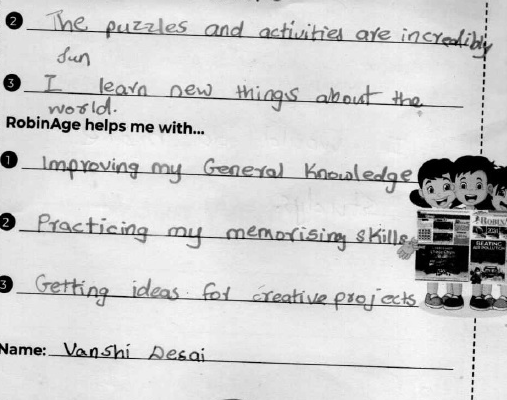 2 The puzzles and activities are incredibly
fun
3 I learn new things about the
world.
RobinAge helps me with...
1 Improving my General Knowledge
2 Practicing my memorising skills
3 Getting ideas for creative projects
Name: Vanshi Desai